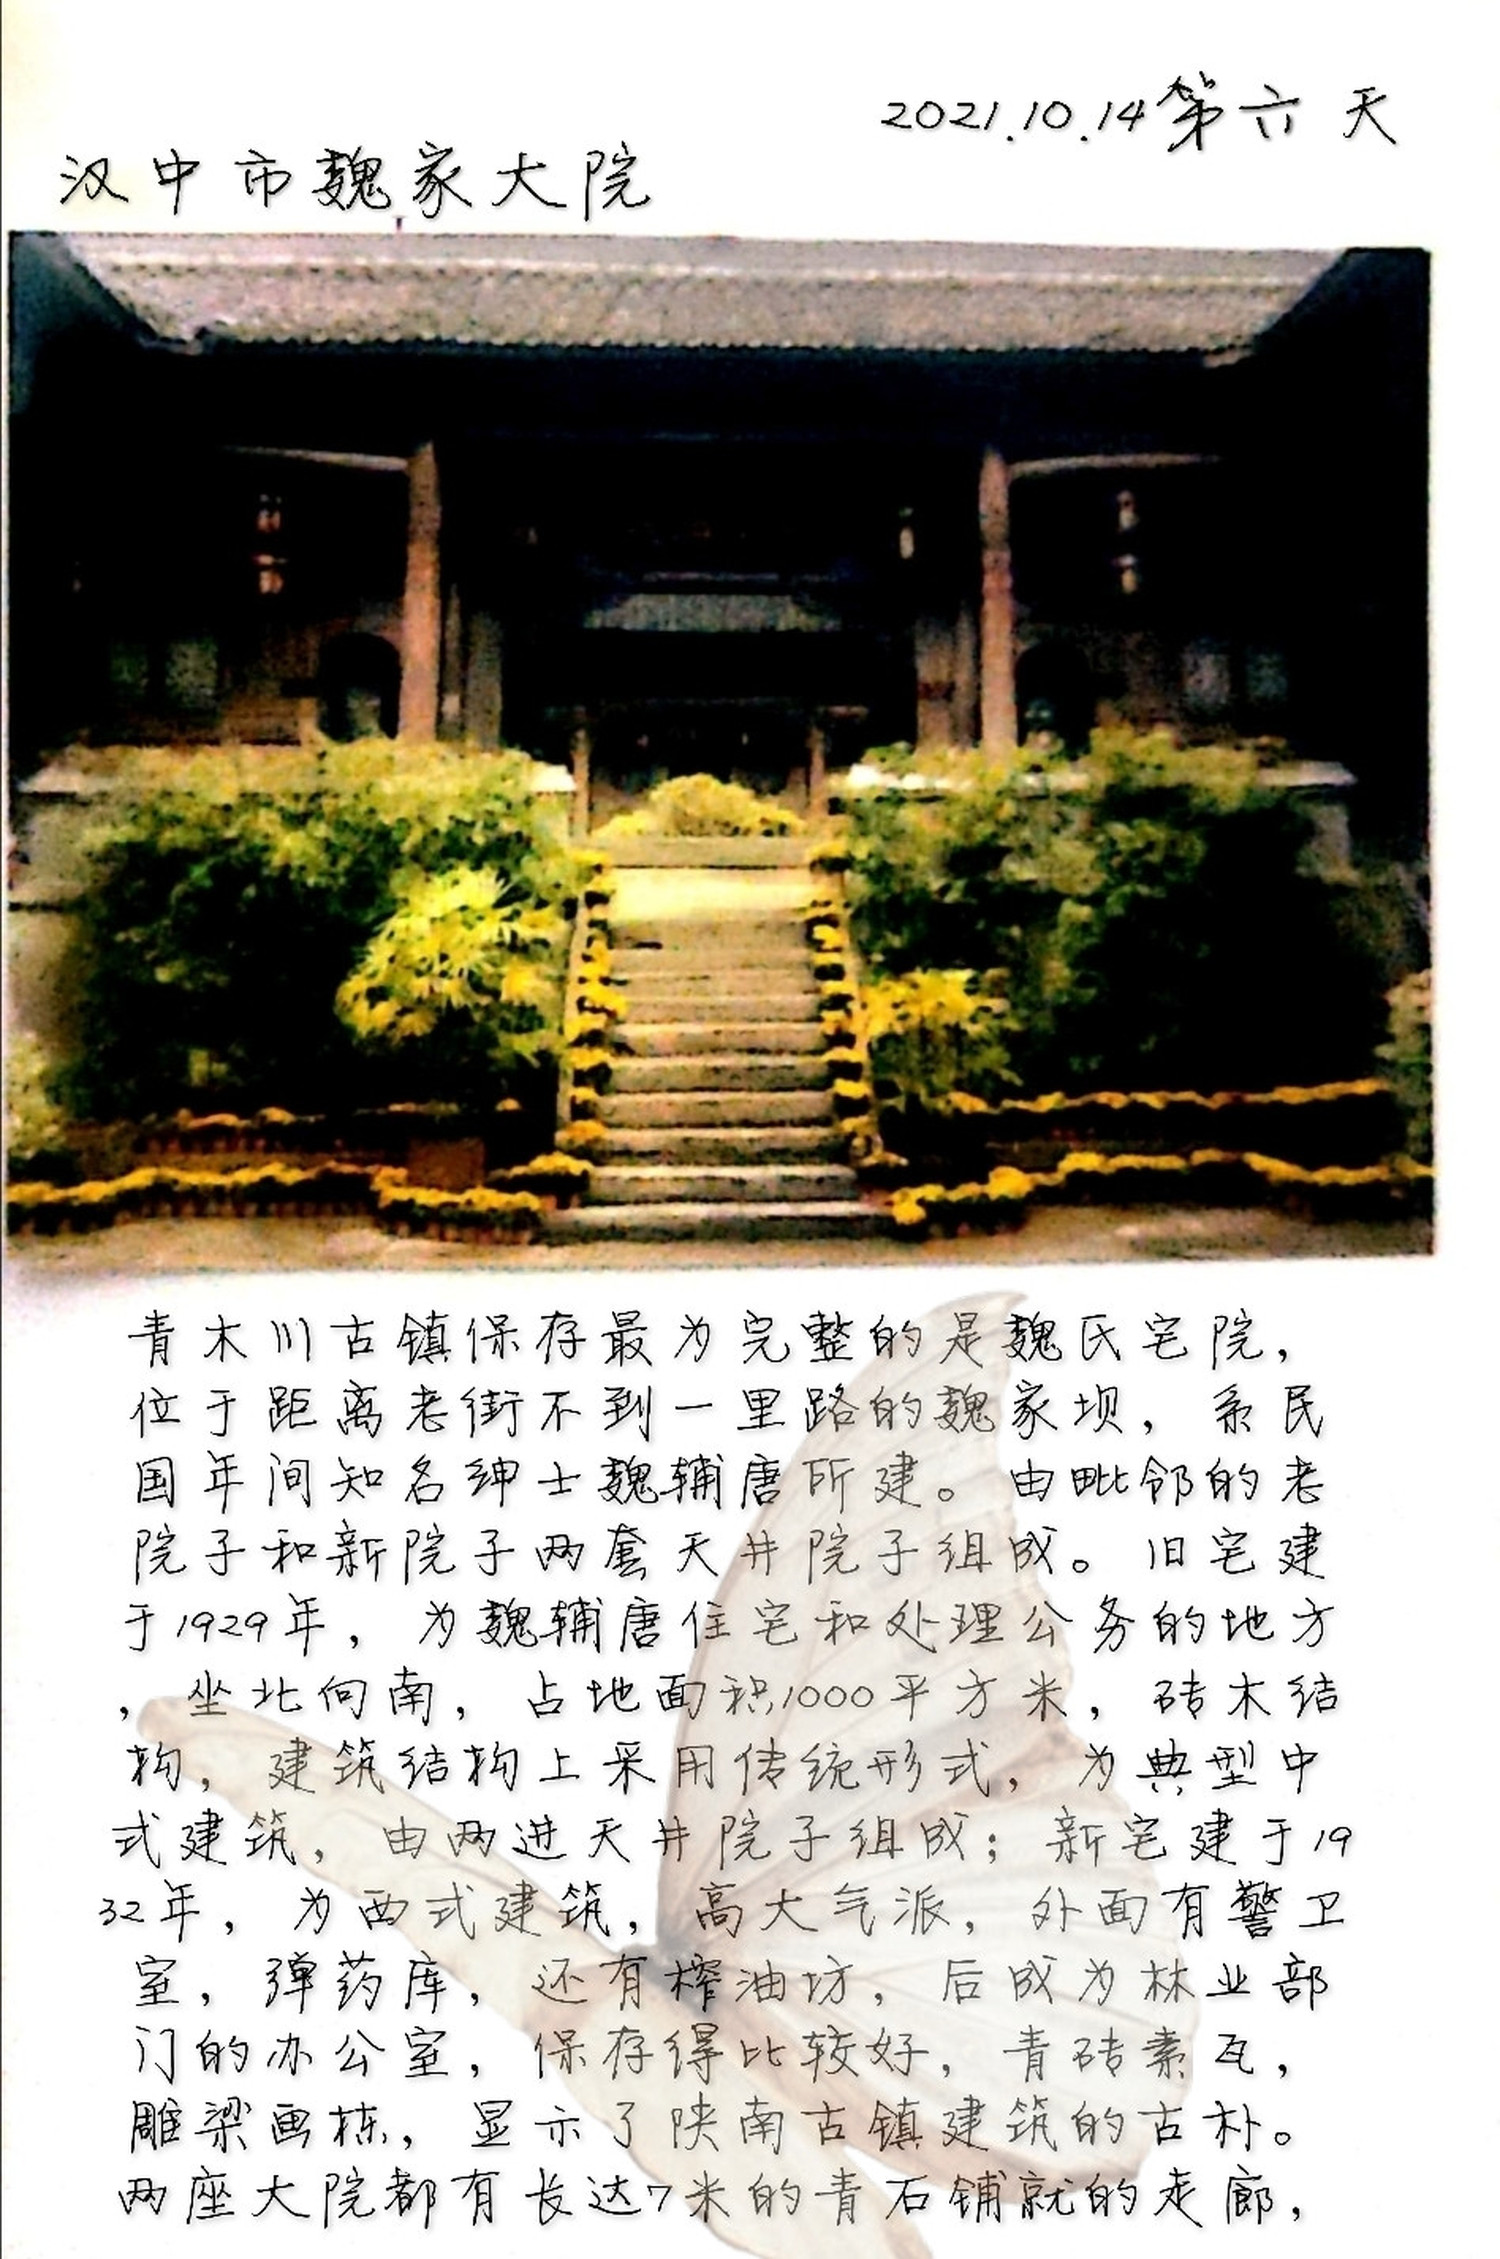 2021.10.14第六天
汉中市魏家大院
青木川古镇保存最为完整的是魏氏宅院，
位于距离老街不到一里路的魏家坝，系民
国年间知名绅士魏辅唐所建。由毗邻的老
院子和新院子两套天井院子组成。旧宅建
于1929年，为魏辅唐住宅和处理公务的地方
，坐北向南，占地面积1000平方米，砖木结
构，建筑结构上采用传统形式，为典型中
式建筑，由两进天井院子组成；新宅建于19
32年，为西式建筑，高大气派，外面有警卫
室，弹药库，还有榨油坊，后成为林业部
门的办公室，保存得比较好，青砖素瓦，
雕梁画栋，显示了陕南古镇建筑的古朴。
两座大院都有长达7米的青石铺就的走廊，